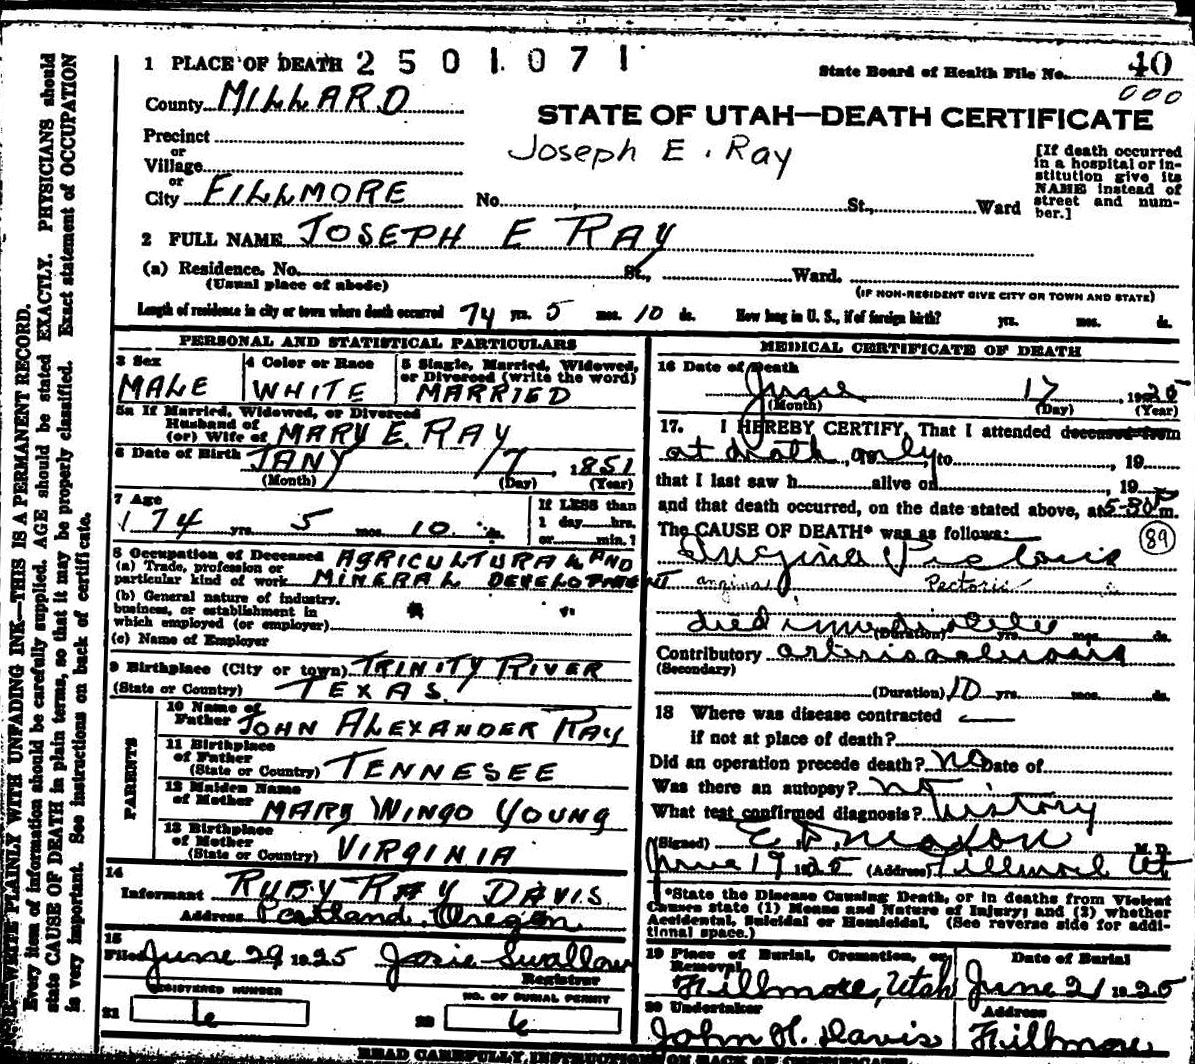 1 PLACE OF DEATH 2 5 0 1 0 7 1
State Board of Health File No. 40
000
County MILLARD
STATE OF UTAH—DEATH CERTIFICATE
Precinct
or
Village
or
City FILLMORE
Joseph E. Ray
No. , St., Ward
[If death occurred
in a hospital or in-
stitution give its
NAME instead of
street and num-
ber.]
2 FULL NAME JOSEPH E RAY
(a) Residence. No. St., Ward.
(Usual place of abode)
(IF NON-RESIDENT GIVE CITY OR TOWN AND STATE)
Length of residence in city or town where death occurred 74 yrs. 5 mos. 10 ds. How long in U. S., if of foreign birth? yrs. mos. ds.
PERSONAL AND STATISTICAL PARTICULARS
3 Sex
MALE
4 Color or Race
WHITE
5 Single, Married, Widowed,
or Divorced (write the word)
MARRIED
5a If Married, Widowed, or Divorced
Husband of
(or) Wife of MARY E. RAY
6 Date of Birth JANY 17, 1851
(Month) (Day) (Year)
7 Age
174 yrs. 5 mos. 10 ds.
If LESS than
1 day hrs.
or min.?
8 Occupation of Deceased
(a) Trade, profession or
particular kind of work AGRICULTURAL AND
MINERAL DEVELOPMENT
(b) General nature of industry,
business, or establishment in
which employed (or employer)
(c) Name of Employer
9 Birthplace (City or town) TRINITY RIVER
(State or Country) TEXAS
PARENTS
10 Name of
Father JOHN ALEXANDER RAY
11 Birthplace
of Father
(State or Country) TENNESEE
12 Maiden Name
of Mother MARY WINGO YOUNG
13 Birthplace
of Mother
(State or Country) VIRGINIA
14
Informant RUBY RAY DAVIS
Address Portland, Oregon
15
Filed June 29 1925 Josie Swallow
Registrar
REGISTERED NUMBER
21 6
NO. OF BURIAL PERMIT
22 6
MEDICAL CERTIFICATE OF DEATH
16 Date of Death
June 17, 1925
(Month) (Day) (Year)
17. I HEREBY CERTIFY, That I attended deceased from
at death only to , 19
that I last saw h alive on , 19
and that death occurred, on the date stated above, at 5-30 P m.
The CAUSE OF DEATH* was as follows:
89
Angina Pectoris
angina Pectoris
died immediately
(Duration) yrs. mos. ds.
Contributory arteriosclerosis
(Secondary)
(Duration) 10 yrs. mos. ds.
18 Where was disease contracted
if not at place of death?
Did an operation precede death? no Date of
Was there an autopsy? no
What test confirmed diagnosis? History
(Signed) M. D.
June 19 1925 (Address) Fillmore Ut
*State the Disease Causing Death, or in deaths from Violent
Causes state (1) Means and Nature of Injury; and (2) whether
Accidental, Suicidal or Homicidal. (See reverse side for addi-
tional space.)
19 Place of Burial, Cremation, or
Removal
Fillmore, Utah
Date of Burial
June 21 1925
20 Undertaker
John H. Davis
Address
Fillmore
READ CAREFULLY INSTRUCTIONS ON BACK OF CERTIFICATE
N. B.—WRITE PLAINLY WITH UNFADING INK—THIS IS A PERMANENT RECORD.
Every item of information should be carefully supplied. AGE should be stated EXACTLY. PHYSICIANS should
state CAUSE OF DEATH in plain terms, so that it may be properly classified. Exact statement of OCCUPATION
is very important. See instructions on back of certificate.